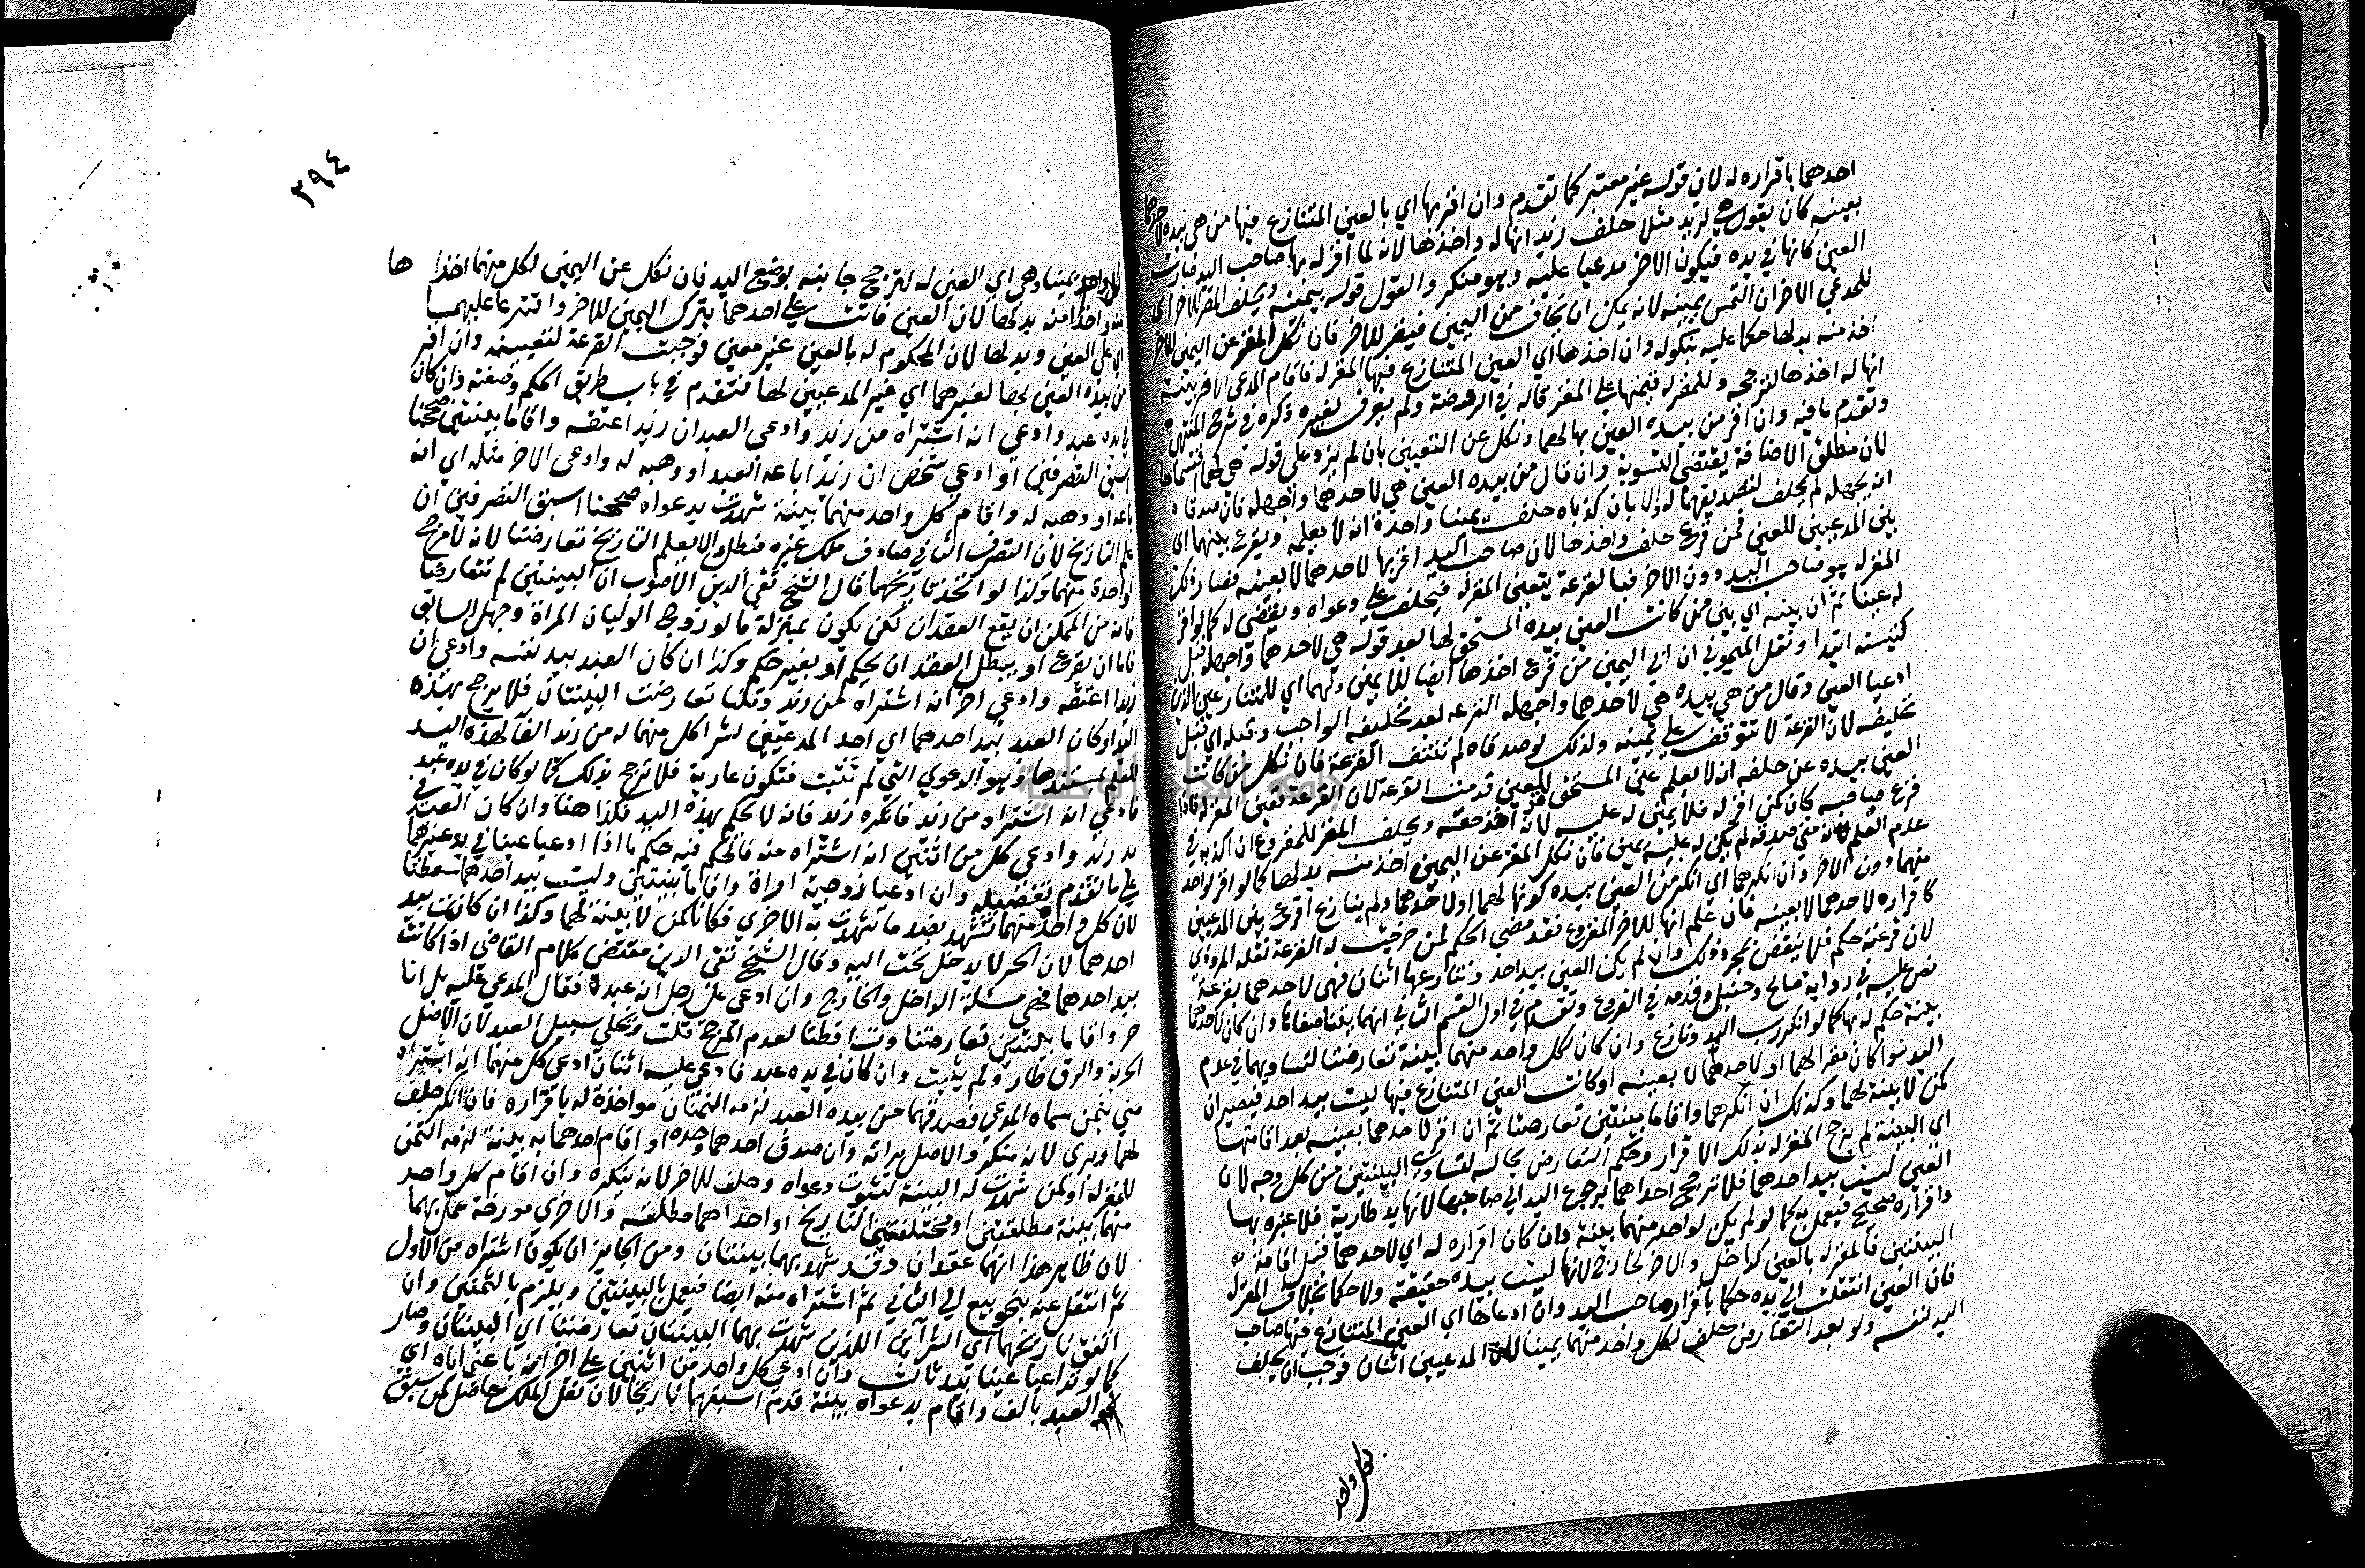 احدهما باقراره له لان قوله غير معتبر كما تقدم وان اقر بها اي بالعين المتنازع فيها من هي بيده لاحدهما
بعينه كان يقول هي لزيد مثلا حلف زيد انها له واخذها لانه لما اقر له بها صاحب اليد صارت
العين كانها في يده فيكون الاخر مدعيا عليه وهو منكر والقول قوله بيمينه ويحلف المقر للاخر اي
للمدعي الاخر ان التمس يمينه لانه يمكن ان يخاف من اليمين فيقر للاخر فان نكل المقر عن اليمين للاخر
اخذ منه بدلها حكما عليه بنكوله وان اخذها اي العين المتنازع فيها المقر له فاقام المدعي الاخر بينة
انها له اخذها لترجحه وللمقر له قيمتها على المقر قاله في الروضة ولم يعرف لغيره ذكره في شرح المنتهى
وتقدم ما فيه وان اقر من بيده العين بها لهما ونكل عن التعيين بان لم يزد على قوله هي لهما اقتسماها
لان مطلق الاضافة يقتضي التسوية وان قال من بيده العين هي لاحدهما واجهله فان صدقاه
انه يجهله لم يحلف لتصديقهما له والا بان كذباه حلف يمينا واحدة انه لا يعلمه ويقرع بينهما اي
بين المدعيين للعين فمن قرع حلف واخذها لان صاحب اليد اقر بها لاحدهما لا بعينه فصار ذلك
المقر له هو صاحب اليد دون الاخر فبالقرعة يتعين المقر له فيحلف على دعواه ويقضى له كما لو اقر
له عينا ثم ان بينه اي بين من كانت العين بيده المستحق لها بعد قوله هي لاحدهما واجهله قبل
كتبينه ابتدا ونقل الميموني ان ابي اليمين من قرع اخذها ايضا للا يمين ولهما اي للمتنازعين اللذين
ادعيا العين وقال من هي بيده هي لاحدهما واجهله القرعة بعد تحليفه الواجب وقبله اي قبل
تحليفه لان القرعة لا تتوقف على يمينه ولذلك لو صدقاه لم تنتف القرعة فان نكل من كانت
العين بيده عن حلفه انه لا يعلم عين المستحق للعين قدمت القرعة لان القرعة تعين المقر له فاذا
قرع صاحبه كان كمن اقر له فلا يمين له عليه لانه اخذ حقه ويحلف المقر للمقروع ان اكذبه في
عدم العلم لانه متى صدقه لم يكن له عليه يمين فان نكل المقر عن اليمين اخذ منه بدلها كما لو اقر لواحد
منهما دون الاخر وان انكرهما اي انكر من العين بيده كونها لهما او لاحدهما ولم ينازع اقرع بين المدعيين
كاقراره لاحدهما لا بعينه فان علم انها للاخر المقروع فقد مضى الحكم لمن خرجت له القرعة نقله المروذي
لان قرعته حكم فلا ينقض بمجرد ذلك وان لم يكن العين بيد احد وتنازعها اثنان فهي لاحدهما بقرعة
نص عليه في رواية صالح وحنبل وقدمه في الفروع وتقدم في اول القسم الثاني انهما يتناصفانها وان كان لاحدهما
بينة حكم له بها كما لو انكر رب اليد ونازع وان كان لكل واحد منهما بينة تعارضتا لتساويهما في عدم
اليد سوا كان مقرا لهما او لاحدهما لا بعينه او كانت العين المتنازع فيها ليست بيد احد فيصيران
كمن لا بينة لهما وكذلك ان انكرهما واقاما بينتين تعارضتا ثم ان اقر لاحدهما بعينه بعد اقامتها
اي البينة لم يرجح المقر له بذلك الاقرار وحكم التعارض بحاله لتساوي البينتين من كل وجه لان
العين ليست بيد احدهما فلا ترجح احداهما برجوع اليد الى صاحبها لانها يد طارية فلا عبرة بها
واقراره صحيح فيعمل به كما لو لم يكن لواحد منهما بينة وان كان اقراره له اي لاحدهما قبل اقامة
البينتين فالمقر له بالعين كداخل والاخر كخارج لانها ليست بيده حقيقة ولا حكما بخلاف المقر له
فان العين انتقلت الى يده حكما باقرار صاحب اليد وان ادعاها اي العين المتنازع فيها صاحب
اليد لنفسه ولو بعد التعارض حلف لكل واحد منهما يمينا لان المدعيين اثنان فوجب ان يحلف
لكل واحد
٢٩٤
لكل واحد يمينا وهي اي العين له لترجح جانبه بوضع اليد فان نكل عن اليمين لكل منهما اخذاها
منه واخذا منه بدلها لان العين فاتت على احدهما بترك اليمين للاخر واقترعا عليهما
اي على العين وبدلها لان المحكوم له بالعين غير معين فوجبت القرعة لتعيينه وان اقر
من بيده العين بها لغيرهما اي غير المدعيين لها فتقدم في باب طريق الحكم وصفته وان كان
في يده عبد وادعى انه اشتراه من زيد وادعى العبد ان زيدا اعتقه واقاما بينتين صححنا
اسبق التصرفين او ادعى شخص ان زيدا باعه العبد او وهبه له وادعى الاخر مثله اي انه
باعه او وهبه له واقام كل واحد منهما بينة شهدت بدعواه صححنا اسبق التصرفين ان
علم التاريخ لان التصرف الثاني صادف ملك غيره فبطل والا يعلم التاريخ تعارضتا لانه لا مرجح
لواحدة منهما وكذا لو اتحد تاريخهما قال الشيخ تقي الدين الاصوب ان البينتين لم تتعارضا
فانه من الممكن ان يقع العقدان لكن يكون بمنزلة ما لو زوج الوليان المراة وجهل السابق
فاما ان يقرع او يبطل العقدان بحكم او بغير حكم وكذا ان كان العبد بيد نفسه وادعى ان
زيدا اعتقه وادعى اخر انه اشتراه من زيد وقلنا تعارضت البينتان فلا يرجح بهذه
اليد او كان العبد بيد احدهما اي احد المدعيين لشرا كل منهما له من زيد الغا لهذه اليد
للعلم بمستندها وهو الدعوى التي لم تثبت فتكون عادية فلا ترجح بذلك كما لو كان في يده عبد
فادعى انه اشتراه من زيد فانكره زيد فانه لا يحكم بهذه اليد فكذا هنا وان كان العبد في
يد زيد وادعى كل من اثنين انه اشتراه منه فالحكم فيه حكم ما اذا ادعيا عينا في يد غيرهما
على ما تقدم تفصيله وان ادعيا زوجية امراة واقاما بينتين وليست بيد احدهما سقطتا
لان كل واحدة منهما تشهد بضد ما شهدت به الاخرى فكانا كمن لا بينة لهما وكذا ان كانت بيد
احدهما لان الحر لا يدخل تحت اليد وقال الشيخ تقي الدين مقتضى كلام القاضي اذا كانت
بيد احدهما فهي مسئلة الداخل والخارج وان ادعى على رجل انه عبده فقال المدعى عليه بل انا
حر واقاما بينتين تعارضتا وتساقطتا لعدم المرجح قلت ويخلى سبيل العبد لان الاصل
الحرية والرق طار ولم يثبت وان كان في يده عبد فادعى عليه اثنان ادعى كل منهما انه اشتراه
مني بثمن سماه المدعي فصدقهما من بيده العبد لزمه الثمنان مواخذة له باقراره فان انكر حلف
لهما وبري لانه منكر والاصل براته وان صدق احدهما وحده او اقام احدهما به بينة لزمه الثمن
للمقر له او لمن شهدت له البينة لثبوت دعواه وحلف للاخر لانه ينكره وان اقام كل واحد
منهما بينة مطلقتين او مختلفتي التاريخ او احداهما مطلقة والاخرى مورخة عمل بهما
لان ظاهر هذا انهما عقدان وقد شهد بهما بينتان ومن الجايز ان يكون اشتراه من الاول
ثم انتقل عنه بنحو بيع الى الثاني ثم اشتراه منه ايضا فيعمل بالبينتين ويلزم بالثمنين وان
اتفق تاريخهما اي الشراين اللذين شهدت بهما البينتان تعارضتا اي البينتان وصار
كما لو تداعيا عينا بيد ثالث وان ادعى كل واحد من اثنين على اخر انه باعني اياه اي
العبد بالف واقام بدعواه بينة قدم اسبقهما تاريخا لان نقل الملك حاصل لمن سبق